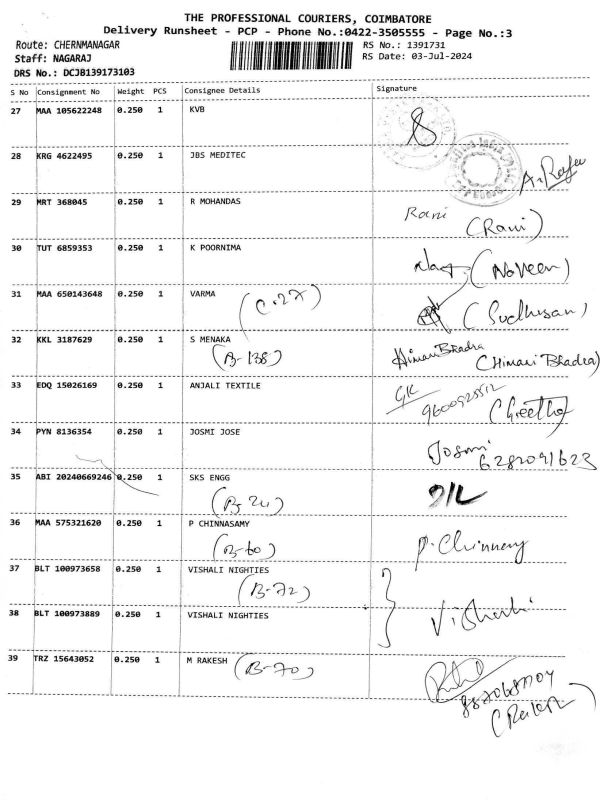 THE PROFESSIONAL COURIERS, COIMBATORE
Delivery Runsheet - PCP - Phone No.:0422-3505555 - Page No.:3
Route: CHERNMANAGAR RS No.: 1391731
Staff: NAGARAJ RS Date: 03-Jul-2024
DRS No.: DCJB139173103
S No Consignment No Weight PCS Consignee Details Signature
27 MAA 105622248 0.250 1 KVB
28 KRG 4622495 0.250 1 JBS MEDITEC
29 MRT 368045 0.250 1 R MOHANDAS Rani (Rani)
30 TUT 6859353 0.250 1 K POORNIMA (Naveen)
31 MAA 650143648 0.250 1 VARMA (C-27) (Sudhusan)
32 KKL 3187629 0.250 1 S MENAKA Himani Bhadra
(B-138) (Himani Bhadra)
33 EDQ 15026169 0.250 1 ANJALI TEXTILE GK 9600925512
(Geetha)
34 PYN 8136354 0.250 1 JOSMI JOSE Josmi
6282091623
35 ABI 20240669246 0.250 1 SKS ENGG
(B-24)
36 MAA 575321620 0.250 1 P CHINNASAMY
(B-60) P. Chinnany
37 BLT 100973658 0.250 1 VISHALI NIGHTIES
(B-72)
38 BLT 100973889 0.250 1 VISHALI NIGHTIES Vishali
39 TRZ 15643052 0.250 1 M RAKESH (B-70)